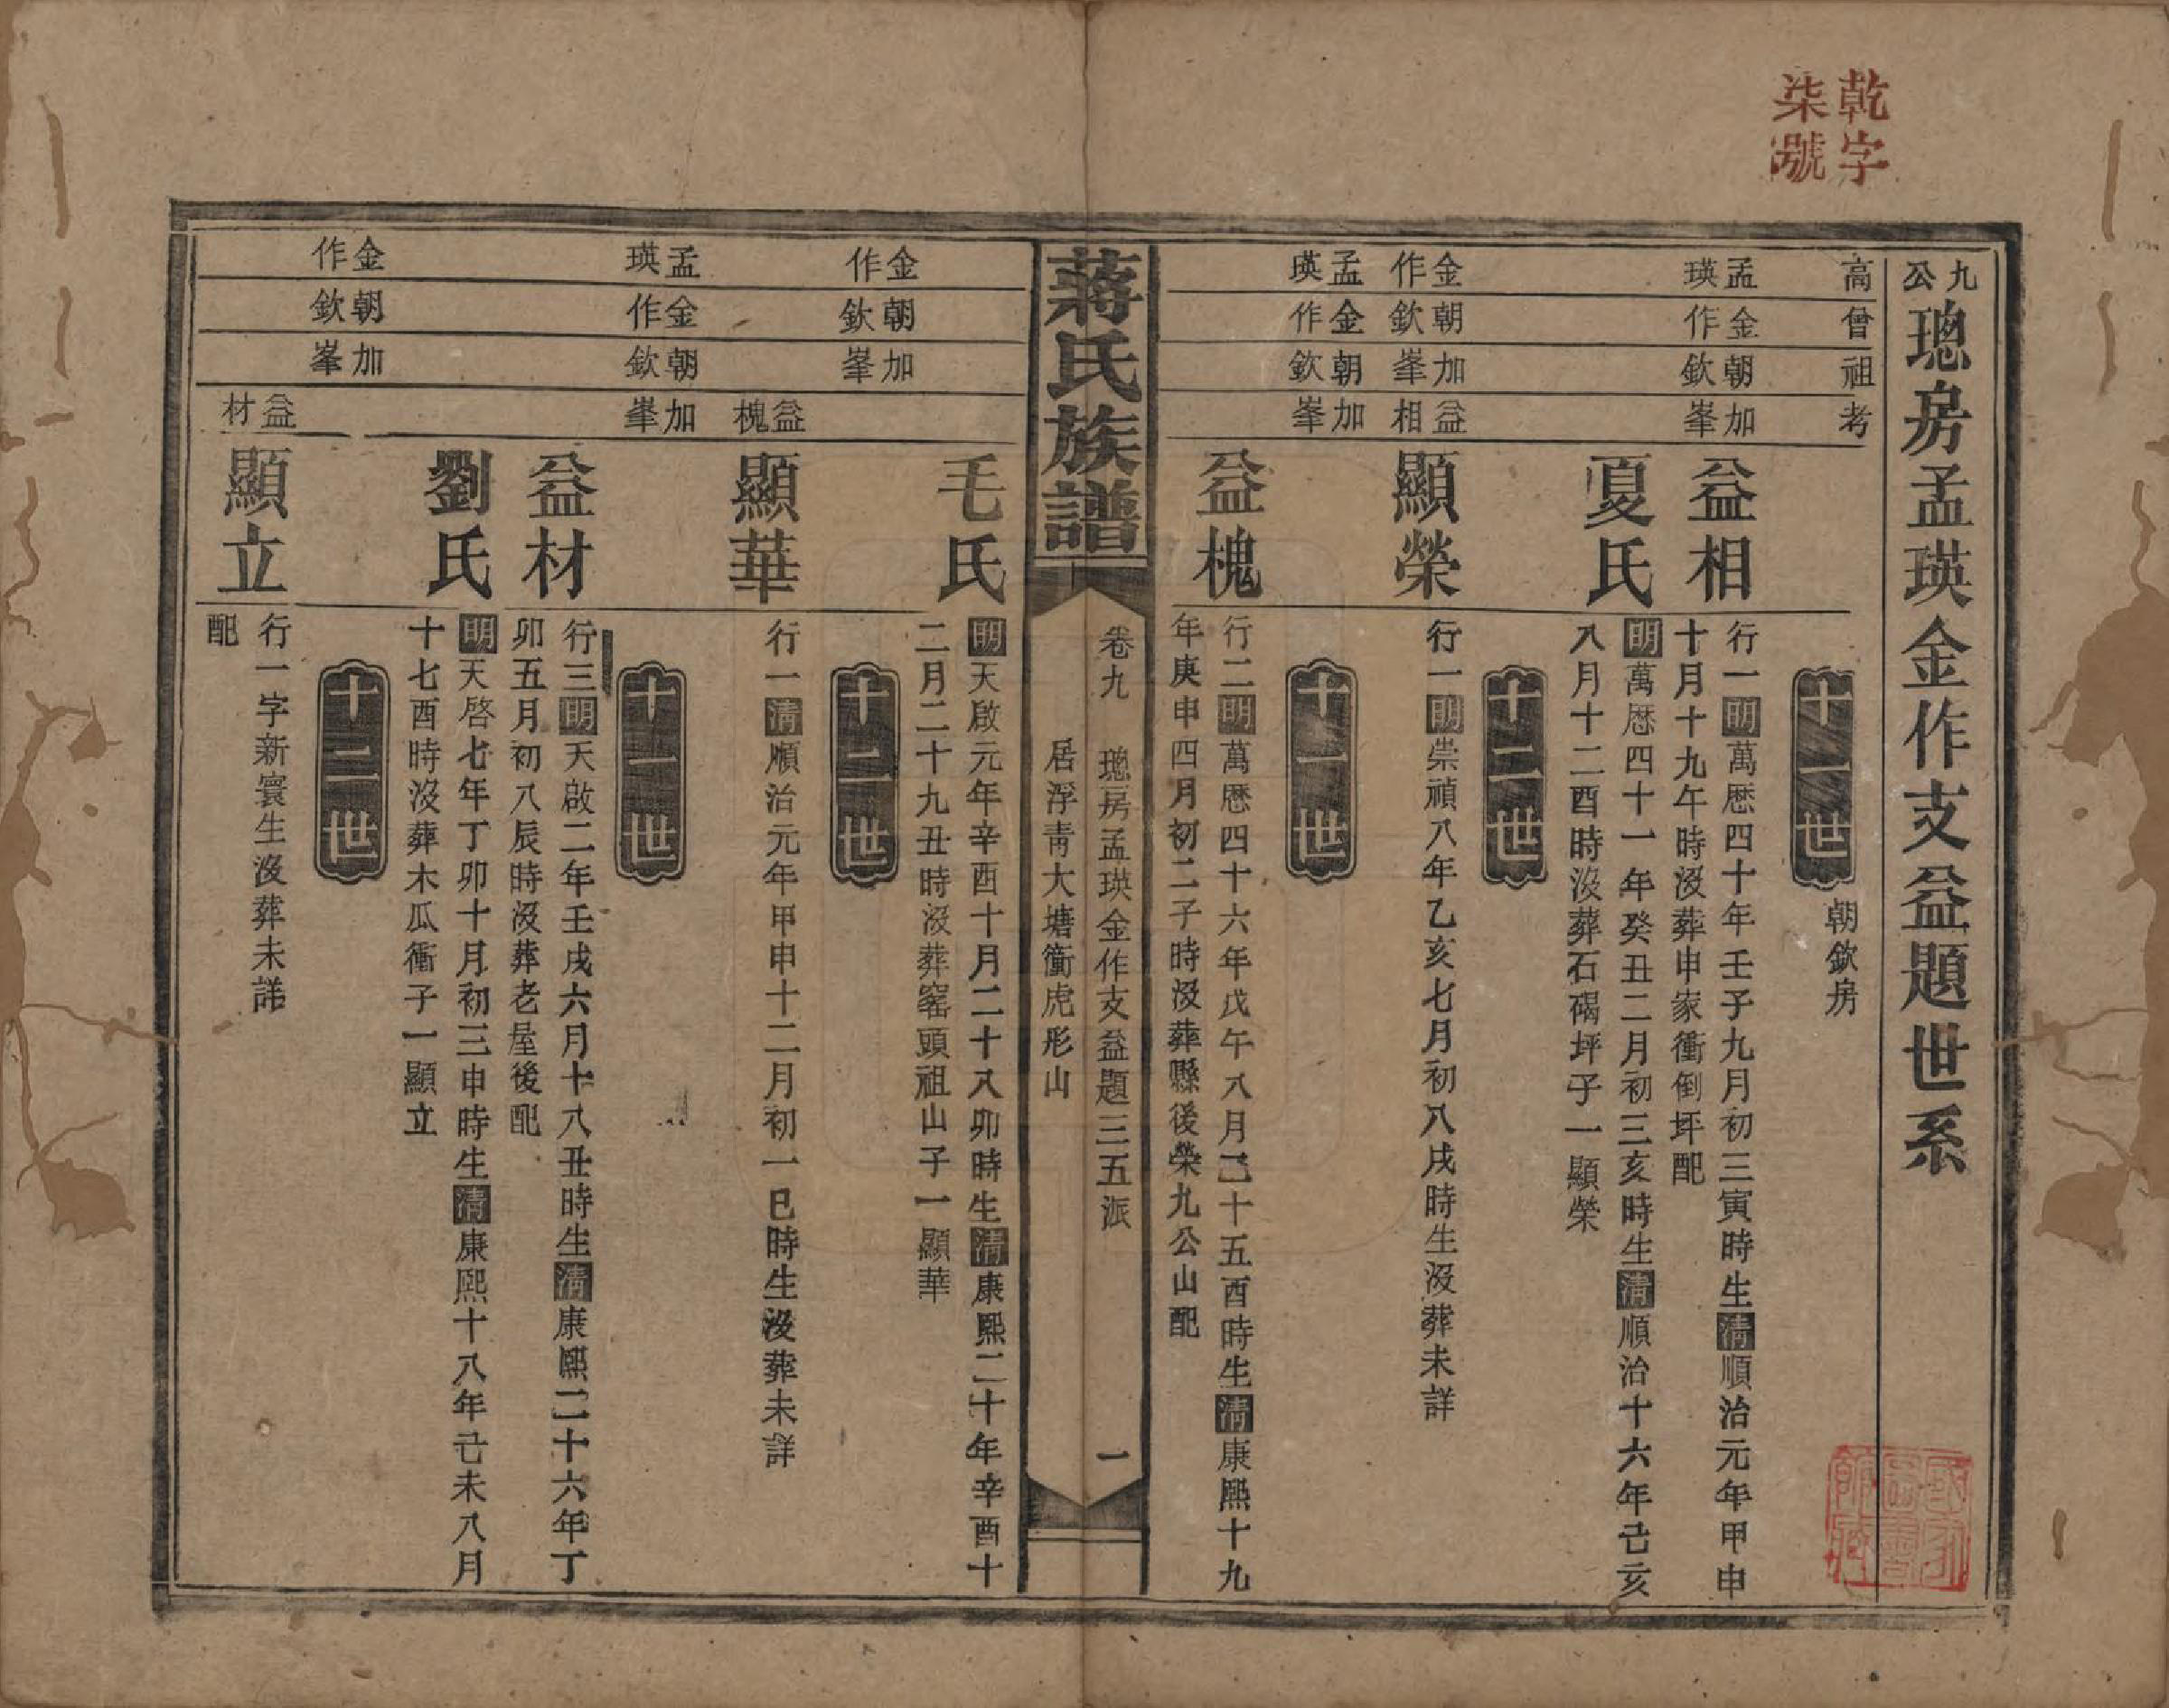 乾字
柒號
九公璁房孟瑛金作支益題世系
高曾祖考
十一世
朝欽房
孟瑛 金作 朝欽 加峯
益相
行一明萬厯四十年壬子九月初三寅時生清順治元年甲申
十月十九午時沒葬申家衝倒坪配
夏氏
明萬厯四十一年癸丑二月初三亥時生清順治十六年己亥
八月十二酉時沒葬石碣坪子一顯榮
十二世
金作 朝欽 加峯 益相
顯榮
行一明崇禎八年乙亥七月初八戌時生沒葬未詳
十一世
孟瑛 金作 朝欽 加峯
益槐
行二明萬厯四十六年戊午八月己十五酉時生清康熙十九
年庚申四月初二子時沒葬縣後榮九公山配
蔣氏族譜
卷九 璁房孟瑛金作支益題三五派 一
居浮青大塘衝虎形山
毛氏
明天啟元年辛酉十月二十八卯時生清康熙二十年辛酉十
二月二十九丑時沒葬窰頭祖山子一顯華
十二世
金作 朝欽 加峯 益槐
顯華
行一清順治元年甲申十二月初一巳時生沒葬未詳
十一世
孟瑛 金作 朝欽 加峯
益材
行三明天啟二年壬戌六月十八丑時生清康熙二十六年丁
卯五月初八辰時沒葬老屋後配
劉氏
明天啓七年丁卯十月初三申時生清康熙十八年己未八月
十七酉時沒葬木瓜衝子一顯立
十二世
金作 朝欽 加峯 益材
顯立
行一字新寰生沒葬未詳
配